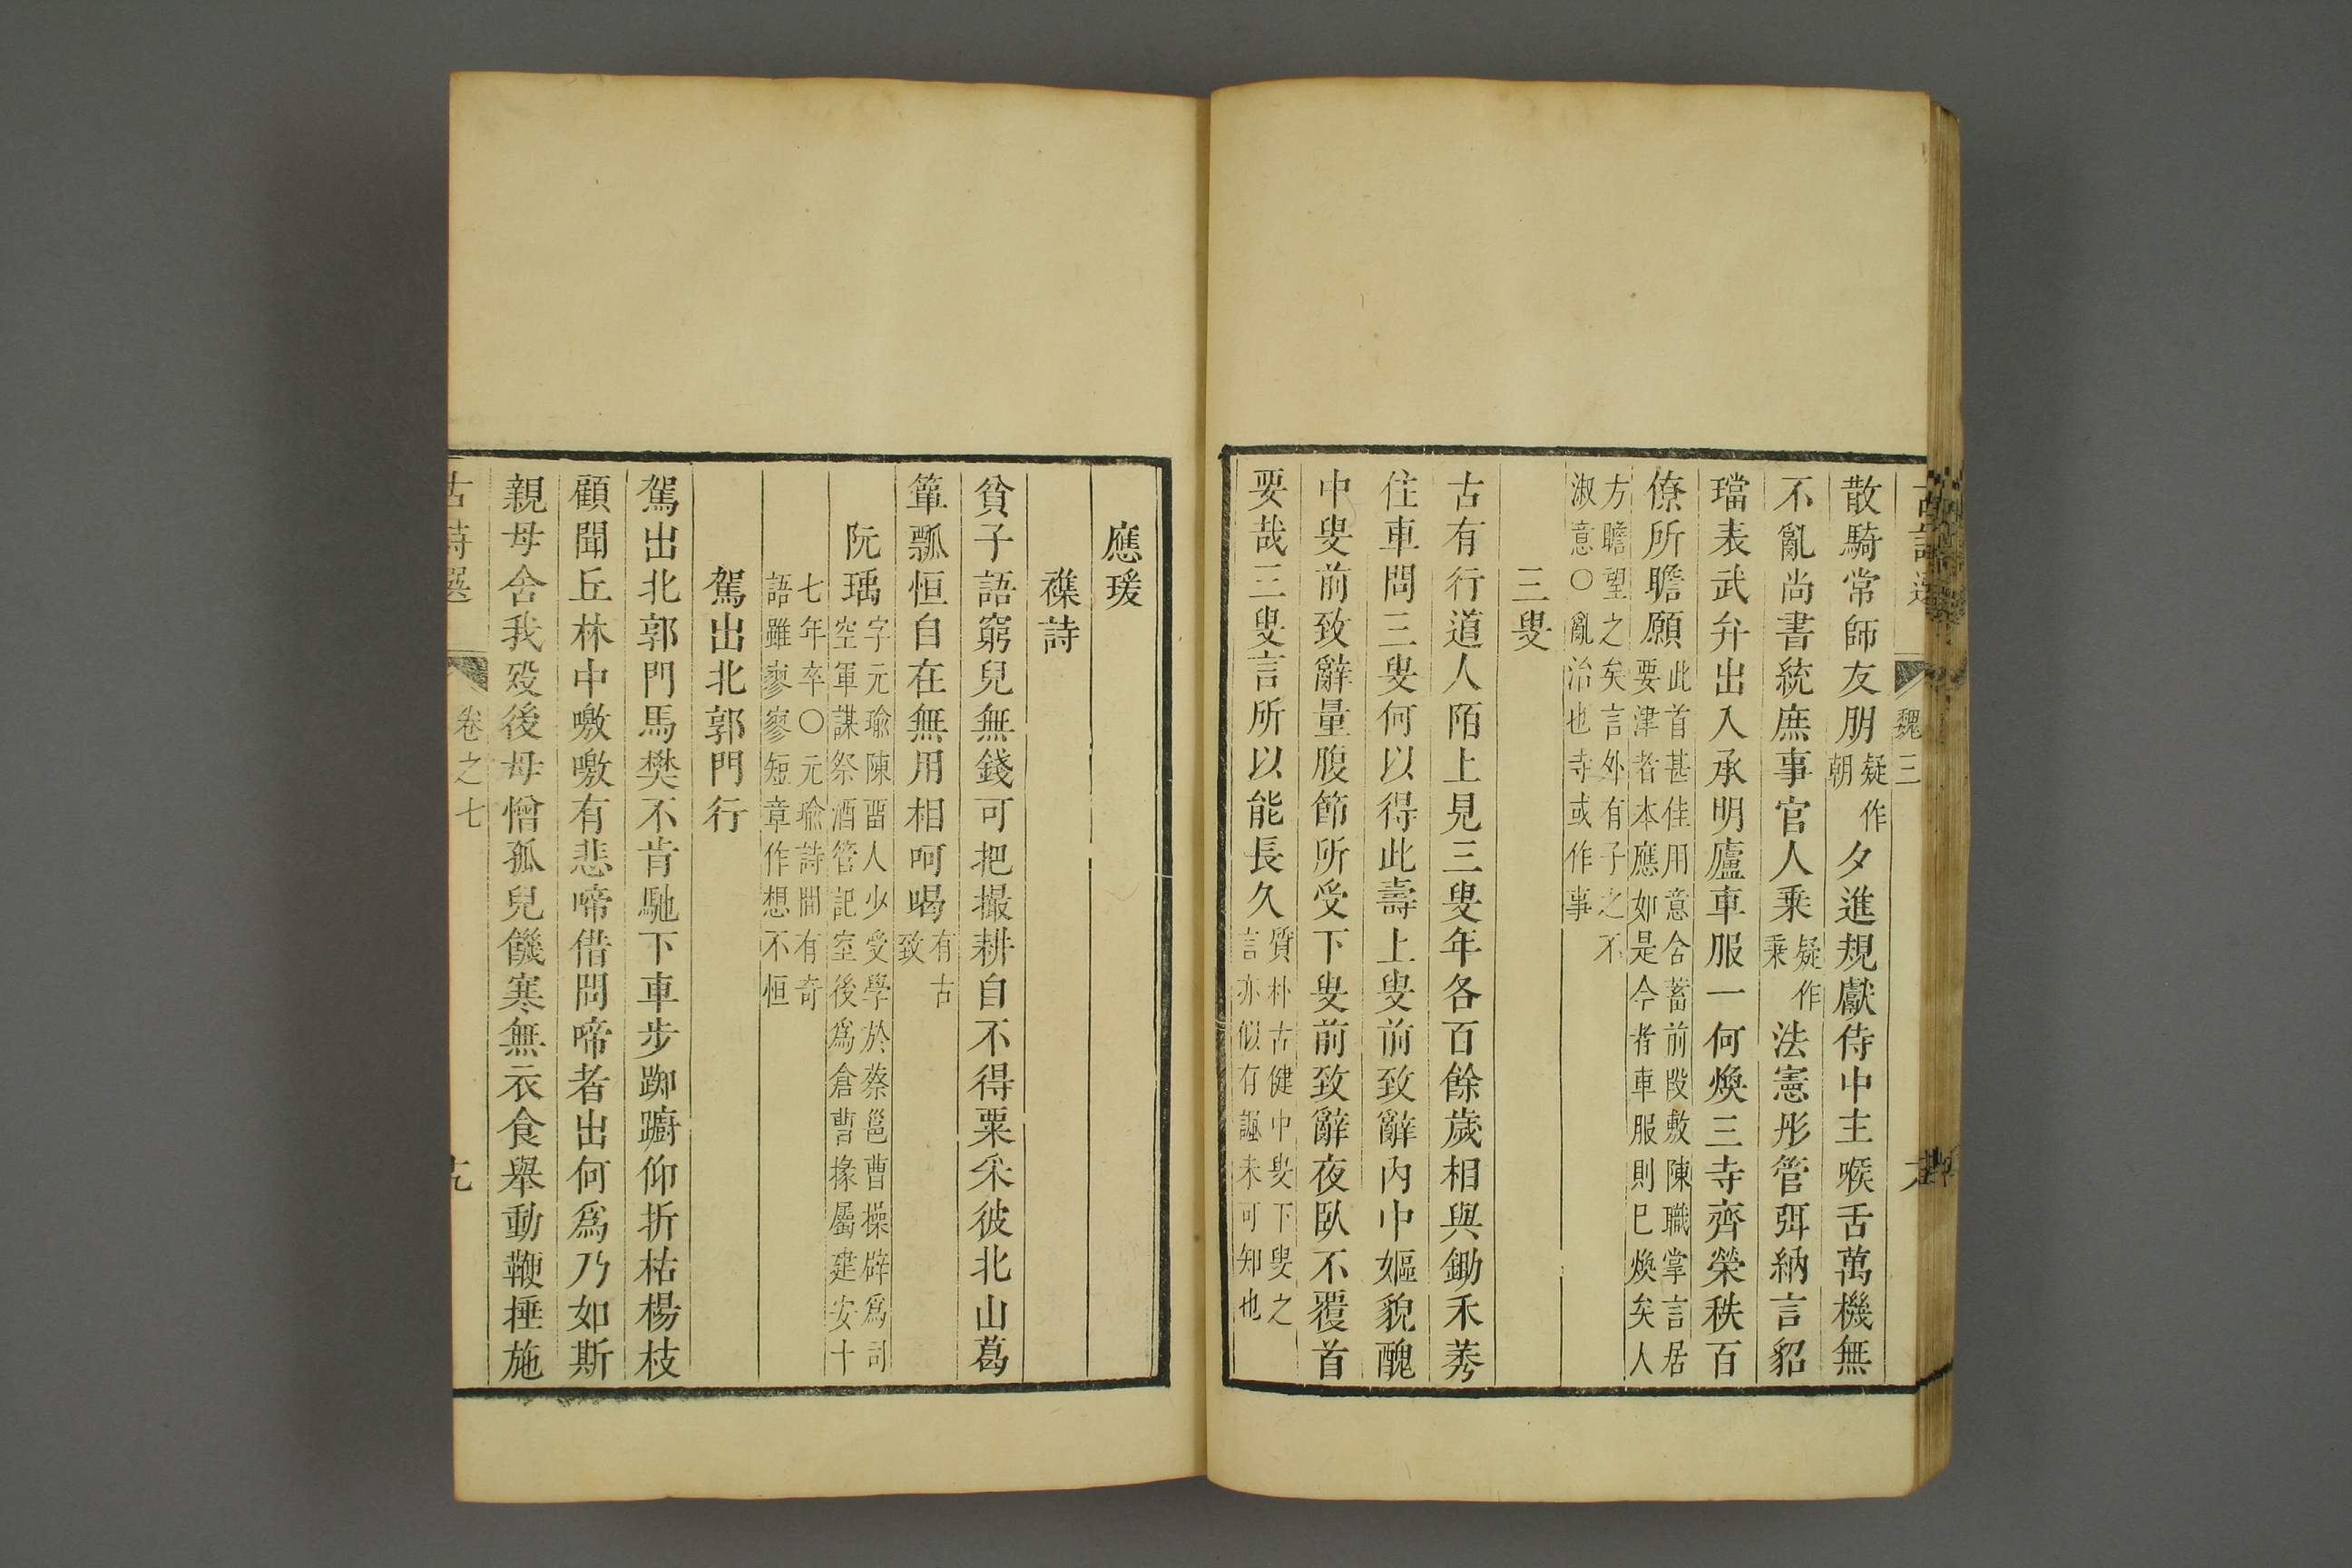 魏三
散騎常師友朋疑作朝夕進規獻侍中主喉舌萬機無
不亂尚書統庶事官人乗疑作秉法憲彤管弭納言貂
璫表武弁出入承明廬車服一何煥三寺齊榮秩百
僚所瞻願此首甚佳用意合蓄前段敷陳職掌言居要津者本應如是今者車服則巳煥矣人
方瞻望之矣言外有子之不淑意○亂治也寺或作事
三叟
古有行道人陌上見三叟年各百餘歲相與鋤禾莠
住車問三叟何以得此壽上叟前致辭內中嫗貌醜
中叟前致辭量腹節所受下叟前致辭夜臥不覆首
要哉三叟言所以能長久質朴古健中叟下叟之言亦似有諷未可知也
應瑗
襍詩
貧子語窮兒無錢可把撮耕自不得粟采彼北山葛
簞瓢恒自在無用相呵喝有古致
阮瑀字元瑜陳畱人少受學於蔡邕曹操辟爲司空軍謀祭酒管記室後爲倉曹掾屬建安十
七年卒○元瑜詩間有奇語雖寥寥短章作想不恒
駕出北郭門行
駕出北郭門馬樊不肯馳下車步踟躕仰折枯楊枝
顧聞丘林中噭噭有悲啼借問啼者出何爲乃如斯
親母舍我歿後母憎孤兒饑寒無衣食舉動鞭捶施
古詩選 卷之七